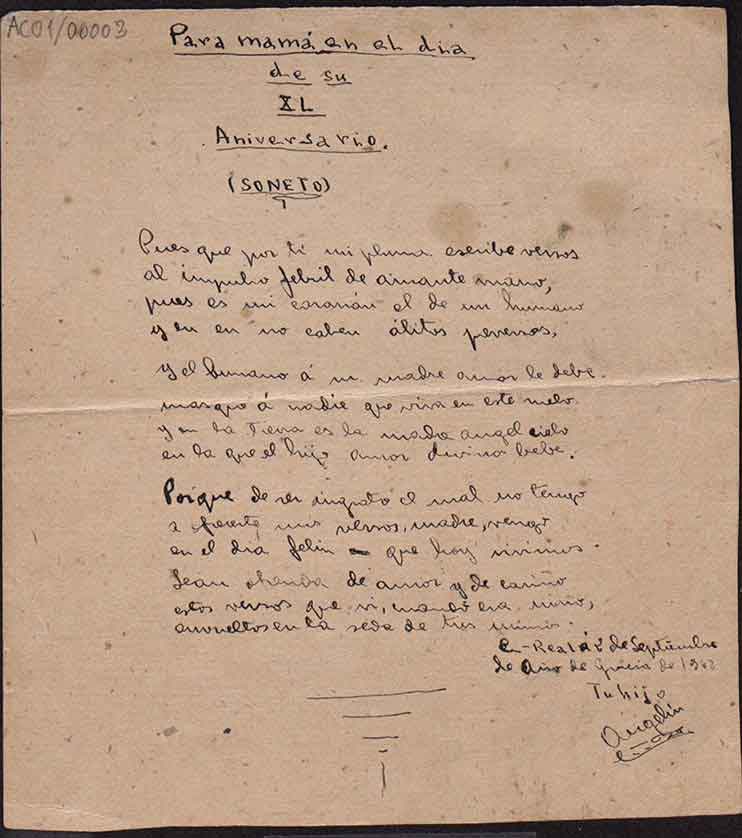 AC01/00003
Para mamá en el dia
de su
XL
Aniversario.
(SONETO)
Pues que por ti mi pluma escribe versos
al impulso febril de amante mano,
pues es mi corazón el de un humano
y en en no caben álitos perversos,
Y el humano á su madre amor le debe
mas que á nadie que viva en este suelo
y en la tierra es la madre angel cielo
en la que el hijo amor divino bebe.
Porque de ser ingrato el mal no tengo
a mis versos, madre, vengo
en el dia feliz que hoy vivimos.
Sean ofrenda de amor y de cariño
estos versos que vi, cuando era niño,
envueltos en la seda de tus mimos.
Real á 2 de Septiembre
de Año de Gracia de
Tu hijo
Angelin